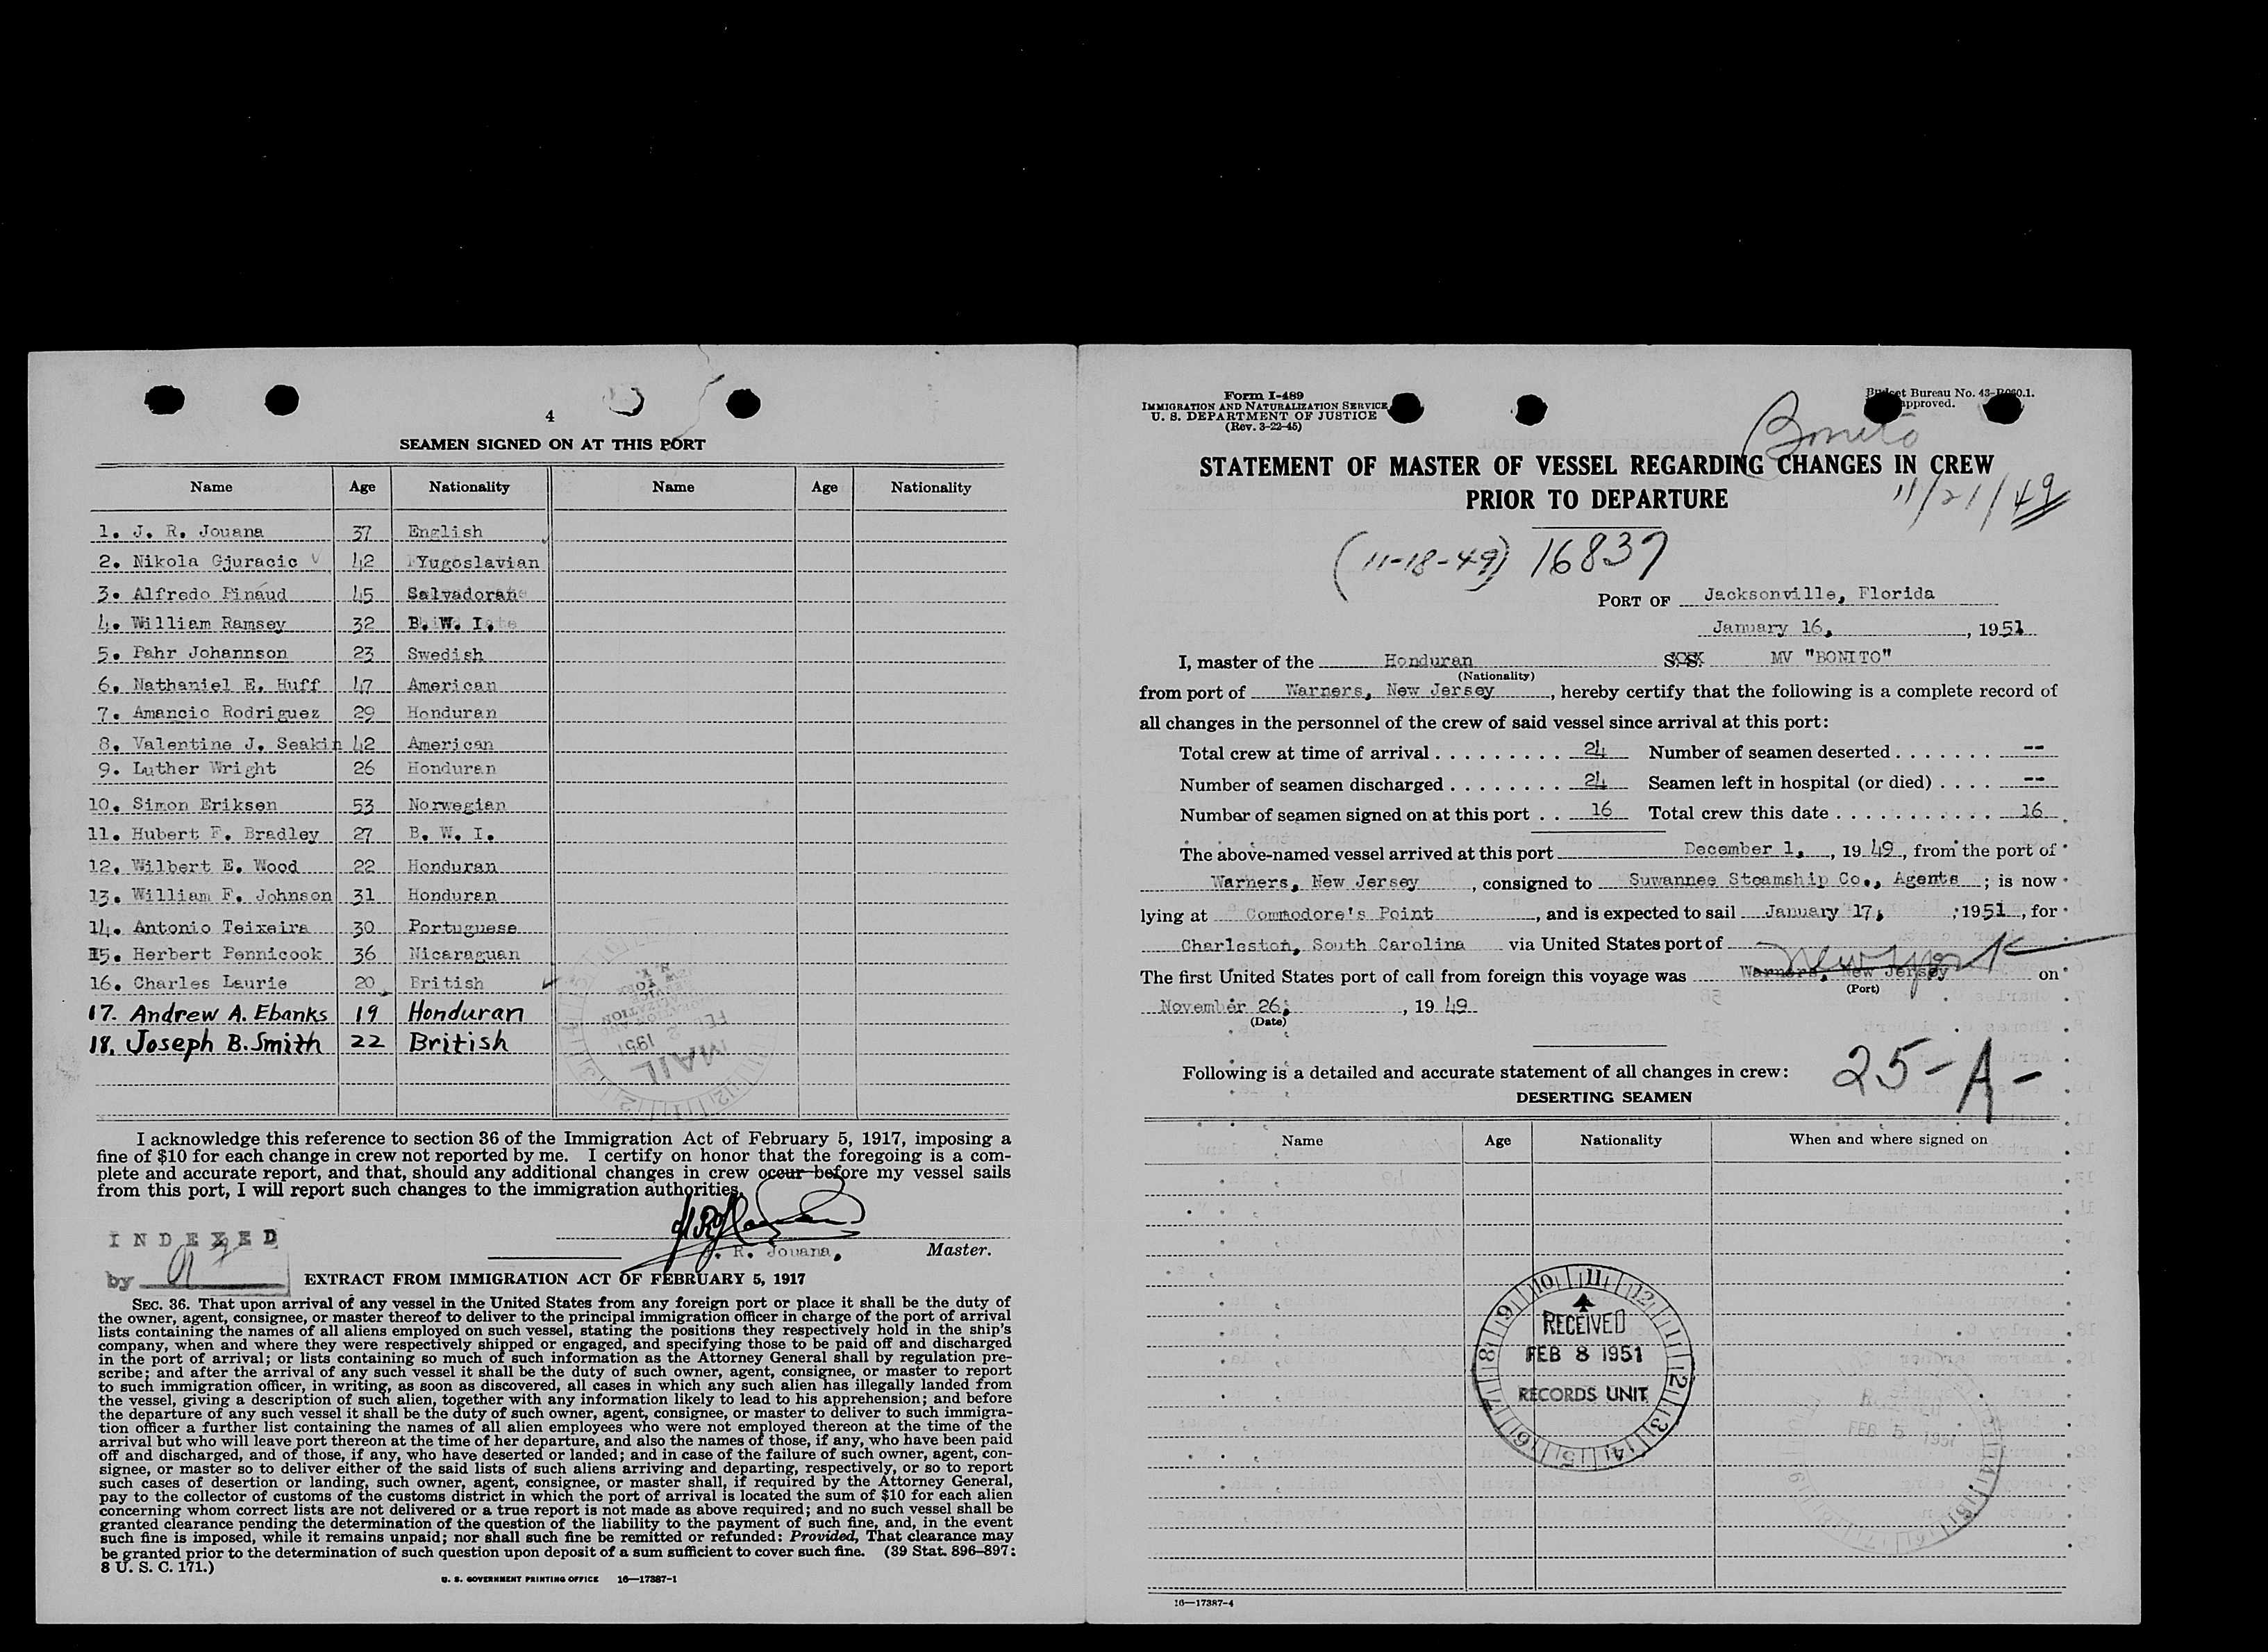 4
SEAMEN SIGNED ON AT THIS PORT
Name Age Nationality Name Age Nationality
1. J. R. Jouana 37 English
2. Nikola Gjuracic V 42 Yugoslavian
3. Alfredo Pinaud 45 Salvadoran
4. William Ramsey 32 B. W. I.
5. Pahr Johannson 23 Swedish
6. Nathaniel E. Huff 47 American
7. Amancio Rodriguez 29 Honduran
8. Valentine J. Seakin 42 American
9. Luther Wright 26 Honduran
10. Simon Eriksen 53 Norwegian
11. Hubert F. Bradley 27 B. W. I.
12. Wilbert E. Wood 22 Honduran
13. William F. Johnson 31 Honduran
14. Antonio Teixeira 30 Portuguese
15. Herbert Pennicook 36 Nicaraguan
16. Charles Laurie 20 British
17. Andrew A. Ebanks 19 Honduran
18. Joseph B. Smith 22 British
FEB 2
1951
MAIL
I acknowledge this reference to section 36 of the Immigration Act of February 5, 1917, imposing a
fine of $10 for each change in crew not reported by me. I certify on honor that the foregoing is a com-
plete and accurate report, and that, should any additional changes in crew occur before my vessel sails
from this port, I will report such changes to the immigration authorities.
INDEXED
by
J. R. Jouana, Master.
EXTRACT FROM IMMIGRATION ACT OF FEBRUARY 5, 1917
SEC. 36. That upon arrival of any vessel in the United States from any foreign port or place it shall be the duty of
the owner, agent, consignee, or master thereof to deliver to the principal immigration officer in charge of the port of arrival
lists containing the names of all aliens employed on such vessel, stating the positions they respectively hold in the ship's
company, when and where they were respectively shipped or engaged, and specifying those to be paid off and discharged
in the port of arrival; or lists containing so much of such information as the Attorney General shall by regulation pre-
scribe; and after the arrival of any such vessel it shall be the duty of such owner, agent, consignee, or master to report
to such immigration officer, in writing, as soon as discovered, all cases in which any such alien has illegally landed from
the vessel, giving a description of such alien, together with any information likely to lead to his apprehension; and before
the departure of any such vessel it shall be the duty of such owner, agent, consignee, or master to deliver to such immigra-
tion officer a further list containing the names of all alien employees who were not employed thereon at the time of the
arrival but who will leave port thereon at the time of her departure, and also the names of those, if any, who have been paid
off and discharged, and of those, if any, who have deserted or landed; and in case of the failure of such owner, agent, con-
signee, or master so to deliver either of the said lists of such aliens arriving and departing, respectively, or so to report
such cases of desertion or landing, such owner, agent, consignee, or master shall, if required by the Attorney General,
pay to the collector of customs of the customs district in which the port of arrival is located the sum of $10 for each alien
concerning whom correct lists are not delivered or a true report is not made as above required; and no such vessel shall be
granted clearance pending the determination of the question of the liability to the payment of such fine, and, in the event
such fine is imposed, while it remains unpaid; nor shall such fine be remitted or refunded: Provided, That clearance may
be granted prior to the determination of such question upon deposit of a sum sufficient to cover such fine. (39 Stat. 896–897;
8 U. S. C. 171.)
U. S. GOVERNMENT PRINTING OFFICE 16—17387-1
Form I-489
IMMIGRATION AND NATURALIZATION SERVICE
U. S. DEPARTMENT OF JUSTICE
(Rev. 3-22-45)
Budget Bureau No. 43-R060.1.
approved.
Bonito
STATEMENT OF MASTER OF VESSEL REGARDING CHANGES IN CREW
PRIOR TO DEPARTURE
11/21/49
(11-18-49) 16837
PORT OF Jacksonville, Florida
January 16, , 1951
I, master of the Honduran SS MV "BONITO"
(Nationality)
from port of Warners, New Jersey , hereby certify that the following is a complete record of
all changes in the personnel of the crew of said vessel since arrival at this port:
Total crew at time of arrival . . . . . . . . . . 24 Number of seamen deserted . . . . . . . --
Number of seamen discharged . . . . . . . . 24 Seamen left in hospital (or died) . . . . --
Number of seamen signed on at this port . . 16 Total crew this date . . . . . . . . . . . 16
The above-named vessel arrived at this port December 1, , 1949, from the port of
Warners, New Jersey , consigned to Suwannee Steamship Co., Agents ; is now
lying at Commodore's Point , and is expected to sail January 17, , 1951, for
Charleston, South Carolina via United States port of
The first United States port of call from foreign this voyage was Warners, New Jersey New York on
(Port)
November 26, , 1949
(Date)
Following is a detailed and accurate statement of all changes in crew:
25-A-
DESERTING SEAMEN
Name Age Nationality When and where signed on
RECEIVED
FEB 8 1951
RECORDS UNIT
FEB 5 1951
16—17387-4